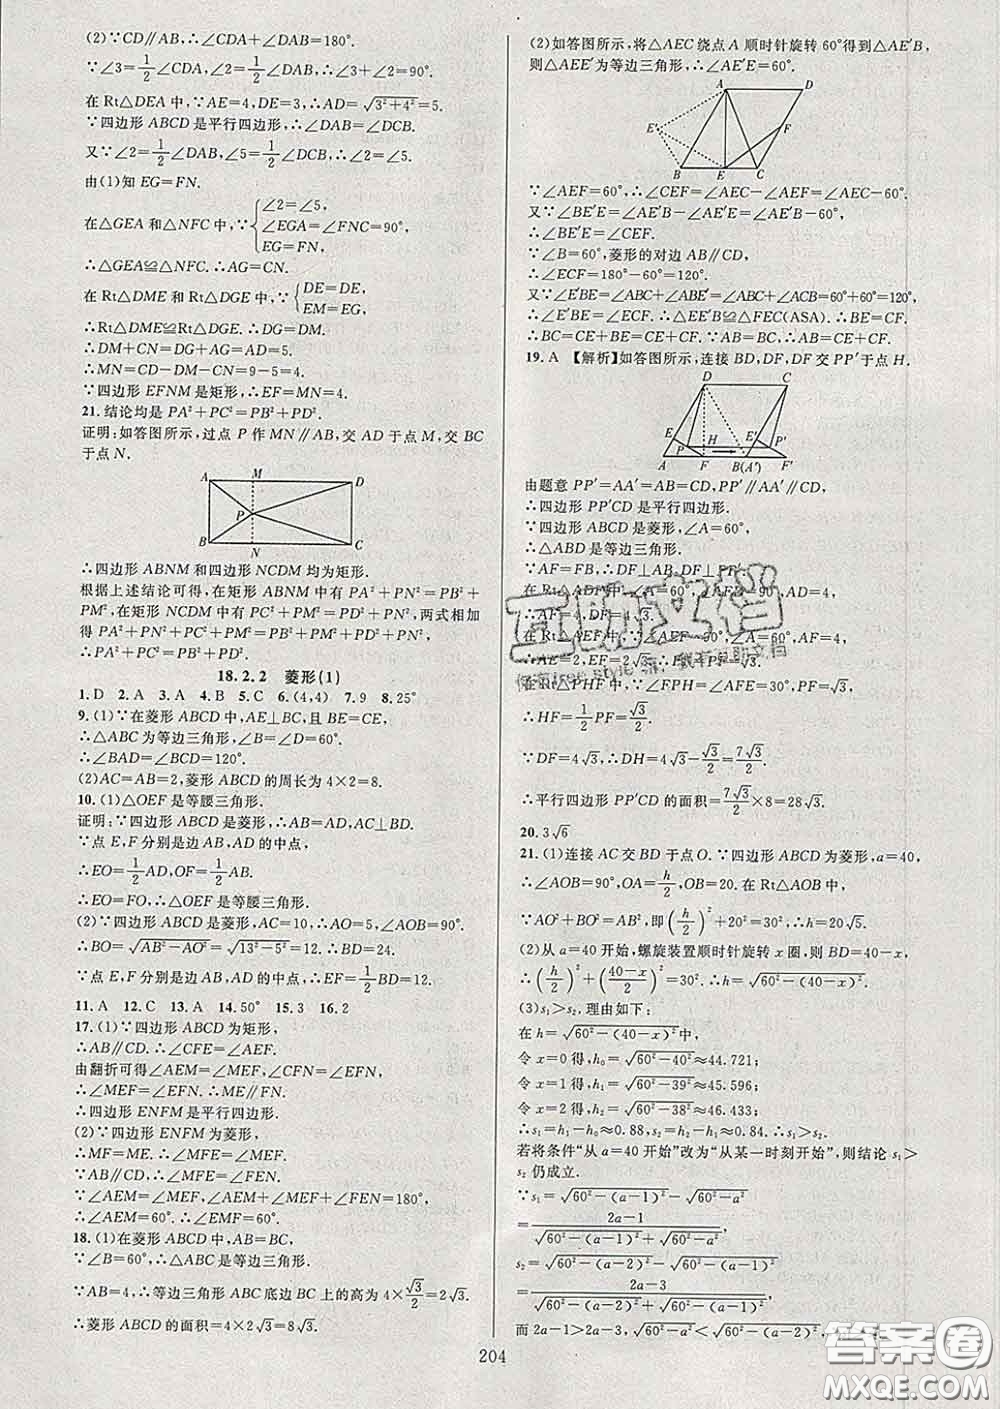 (2)∵CD∥AB,∴∠CDA+∠DAB=180°.
∵∠3=1/2∠CDA,∠2=1/2∠DAB,∴∠3+∠2=90°.
在 Rt△DEA 中,∵AE=4,DE=3,∴AD=√(3²+4²)=5.
∵四边形 ABCD 是平行四边形,∴∠DAB=∠DCB.
又∵∠2=1/2∠DAB,∠5=1/2∠DCB,∴∠2=∠5.
由(1)知 EG=FN.
在△GEA 和△NFC 中,∵{∠2=∠5,
∠EGA=∠FNC=90°,
EG=FN,
∴△GEA≌△NFC.∴AG=CN.
在 Rt△DME 和 Rt△DGE 中,∵{DE=DE,
EM=EG,
∴Rt△DME≌Rt△DGE.∴DG=DM.
∴DM+CN=DG+AG=AD=5.
∴MN=CD-DM-CN=9-5=4.
∵四边形 EFNM 是矩形,∴EF=MN=4.
21.结论均是 PA²+PC²=PB²+PD².
证明:如答图所示,过点 P 作 MN∥AB,交 AD 于点 M,交 BC
于点 N.
A M D
P
B N C
∴四边形 ABNM 和四边形 NCDM 均为矩形.
根据上述结论可得,在矩形 ABNM 中有 PA²+PN²=PB²+
PM²,在矩形 NCDM 中有 PC²+PM²=PD²+PN²,两式相加
得 PA²+PN²+PC²+PM²=PB²+PM²+PD²+PN²,
∴PA²+PC²=PB²+PD².
18.2.2 菱形(1)
1.D 2.A 3.A 4.B 5.C 6.(4,4) 7.9 8.25°
9.(1)∵在菱形 ABCD 中,AE⊥BC,且 BE=CE,
∴△ABC 为等边三角形,∠B=∠D=60°.
∴∠BAD=∠BCD=120°.
(2)AC=AB=2,菱形 ABCD 的周长为 4×2=8.
10.(1)△OEF 是等腰三角形.
证明:∵四边形 ABCD 是菱形,∴AB=AD,AC⊥BD.
∵点 E,F 分别是边 AB,AD 的中点,
∴EO=1/2AD,OF=1/2AB.
∴EO=FO,∴△OEF 是等腰三角形.
(2)∵四边形 ABCD 是菱形,AC=10,∴AO=5,∠AOB=90°.
∴BO=√(AB²-AO²)=√(13²-5²)=12.∴BD=24.
∵点 E,F 分别是边 AB,AD 的中点,∴EF=1/2BD=12.
11.A 12.C 13.A 14.50° 15.3 16.2
17.(1)∵四边形 ABCD 为矩形,
∴AB∥CD.∴∠CFE=∠AEF.
由翻折可得∠AEM=∠MEF,∠CFN=∠EFN,
∴∠MEF=∠EFN.∴ME∥FN.
∴四边形 ENFM 是平行四边形.
(2)∵四边形 ENFM 为菱形,
∴MF=ME.∴∠MFE=∠MEF.
∵AB∥CD,∴∠NEF=∠MFE.
∵∠AEM=∠MEF,∠AEM+∠MEF+∠FEN=180°,
∴∠AEM=60°.∴∠EMF=60°.
18.(1)在菱形 ABCD 中,AB=BC,
∵∠B=60°,∴△ABC 是等边三角形.
∵AB=4,∴等边三角形 ABC 底边 BC 上的高为 4×√3/2=2√3.
∴菱形 ABCD 的面积=4×2√3=8√3.
(2)如答图所示,将△AEC 绕点 A 顺时针旋转 60°得到△AE′B,
则△AEE′为等边三角形,∴∠AE′E=60°.
A D
E′ F
B E C
∵∠AEF=60°,∴∠CEF=∠AEC-∠AEF=∠AEC-60°.
又∵∠BE′E=∠AE′B-∠AE′E=∠AE′B-60°,
∴∠BE′E=∠CEF.
∵∠B=60°,菱形的对边 AB∥CD,
∴∠ECF=180°-60°=120°.
又∵∠E′BE=∠ABC+∠ABE′=∠ABC+∠ACB=60°+60°=120°,
∴∠E′BE=∠ECF.∴△EE′B≌△FEC(ASA).∴BE=CF.
∴BC=CE+BE=CE+CF.∵AB=BC,∴AB=CE+CF.
19.A 【解析】如答图所示,连接 BD,DF,DF 交 PP′于点 H.
D C
E H E′ P′
P
A F B(A′) F′
由题意 PP′=AA′=AB=CD,PP′∥AA′∥CD,
∴四边形 PP′CD 是平行四边形.
∵四边形 ABCD 是菱形,∠A=60°,
∴△ABD 是等边三角形.
∵AF=FB,∴DF⊥AB,DF⊥PP′.
∴AF=4,DF=4√3.
∴AE=2,EF=2√3.
在 Rt△PHF 中,∵∠FPH=∠AFE=30°,
∴HF=1/2PF=√3/2.
∵DF=4√3,∴DH=4√3-√3/2=7√3/2.
∴平行四边形 PP′CD 的面积=7√3/2×8=28√3.
20.3√6
21.(1)连接 AC 交 BD 于点 O.∵四边形 ABCD 为菱形,a=40,
∴∠AOB=90°,OA=h/2,OB=20.在 Rt△AOB 中,
∵AO²+BO²=AB²,即(h/2)²+20²=30²,∴h=20√5.
(2)从 a=40 开始,螺旋装置顺时针旋转 x 圈,则 BD=40-x,
∴(h/2)²+((40-x)/2)²=30².∴h=√(60²-(40-x)²).
(3)s₁>s₂.理由如下:
在 h=√(60²-(40-x)²)中,
令 x=0 得,h₀=√(60²-40²)≈44.721;
令 x=1 得,h₁=√(60²-39²)≈45.596;
令 x=2 得,h₂=√(60²-38²)≈46.433;
∴s₁=h₁-h₀≈0.88,s₂=h₂-h₁≈0.84.∴s₁>s₂.
若将条件“从 a=40 开始”改为“从某一时刻开始”,则结论 s₁>
s₂ 仍成立.
∵s₁=√(60²-(a-1)²)-√(60²-a²)
=(2a-1)/(√(60²-(a-1)²)+√(60²-a²)),
s₂=√(60²-(a-2)²)-√(60²-(a-1)²)
=(2a-3)/(√(60²-(a-2)²)+√(60²-(a-1)²)),
而 2a-1>2a-3,√(60²-a²)<√(60²-(a-2)²),
204
互助文档
答案圈
MXQE.COM